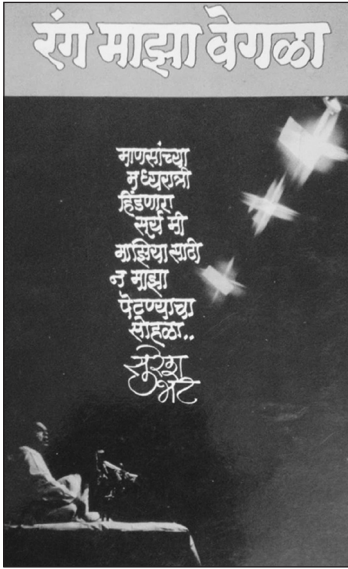 रंग माझा वेगळा
माणसांच्या
मध्यरात्री
हिंडणारा
सूर्य मी
माझिया साठी
न माझा
पेटण्याचा
सोहळा..
सुरेश
भट